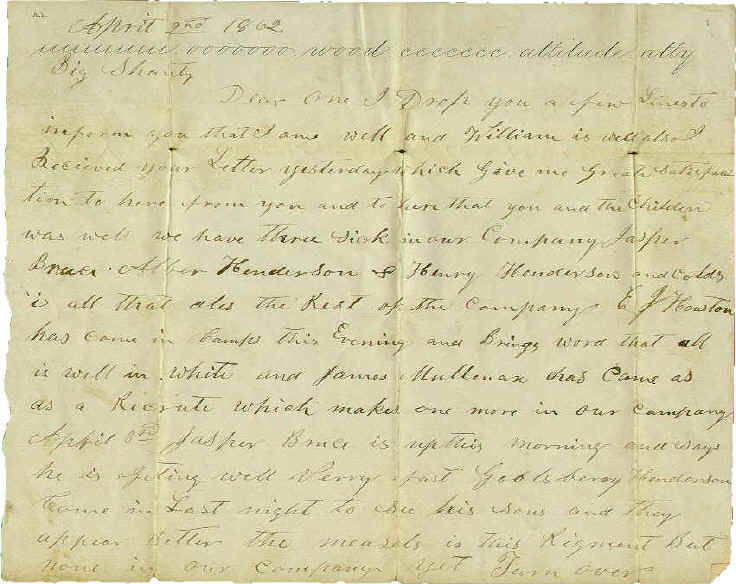 April 2nd 1862
uuuuuuu ooooooo wood ccccccc attitude atty
Big Shanty
Dear one I Drop you a few Lines to
inform you that I am well and William is well also I
Recieved your Letter yesterday which Give me Great Satisfac
tion to here from you and to here that you and the Children
was well we have three Sick in our Company Jasper
Bruce Henderson & Henry Henderson and Colds
is all that ales the Rest of the Company E J Houston
has come in Camps this Evening and Brings word that all
is well in White and James Mullenax has Came as
as a Recrute which makes one more in our Company
April 3rd Jasper Bruce is up this morning and Says
he is Geting well Verry fast Goolsberry Henderson
Came in Last night to See his Sons and they
appear Better the measels is this Rigment But
none in our Company yet Turn over